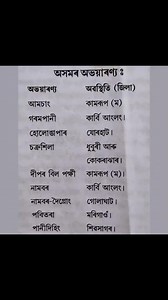 অসমৰ অভয়াৰণ্য ঃ
অভয়াৰণ্য অৱস্থিতি (জিলা)
আমচাং কামৰূপ (ম)
গৰমপানী কাৰ্বি আংলং।
হোলোঙাপাৰ যোৰহাট।
চক্ৰশিলা ধুবুৰী আৰু
কোকৰাঝাৰ।
দীপৰ বিল পক্ষী কামৰূপ (ম)
নামবৰ কাৰ্বি আংলং।
নামবৰ-দৈগ্ৰোং গোলাঘাট।
পবিতৰা মৰিগাওঁ।
পানীদিহিং শিৱসাগৰ।